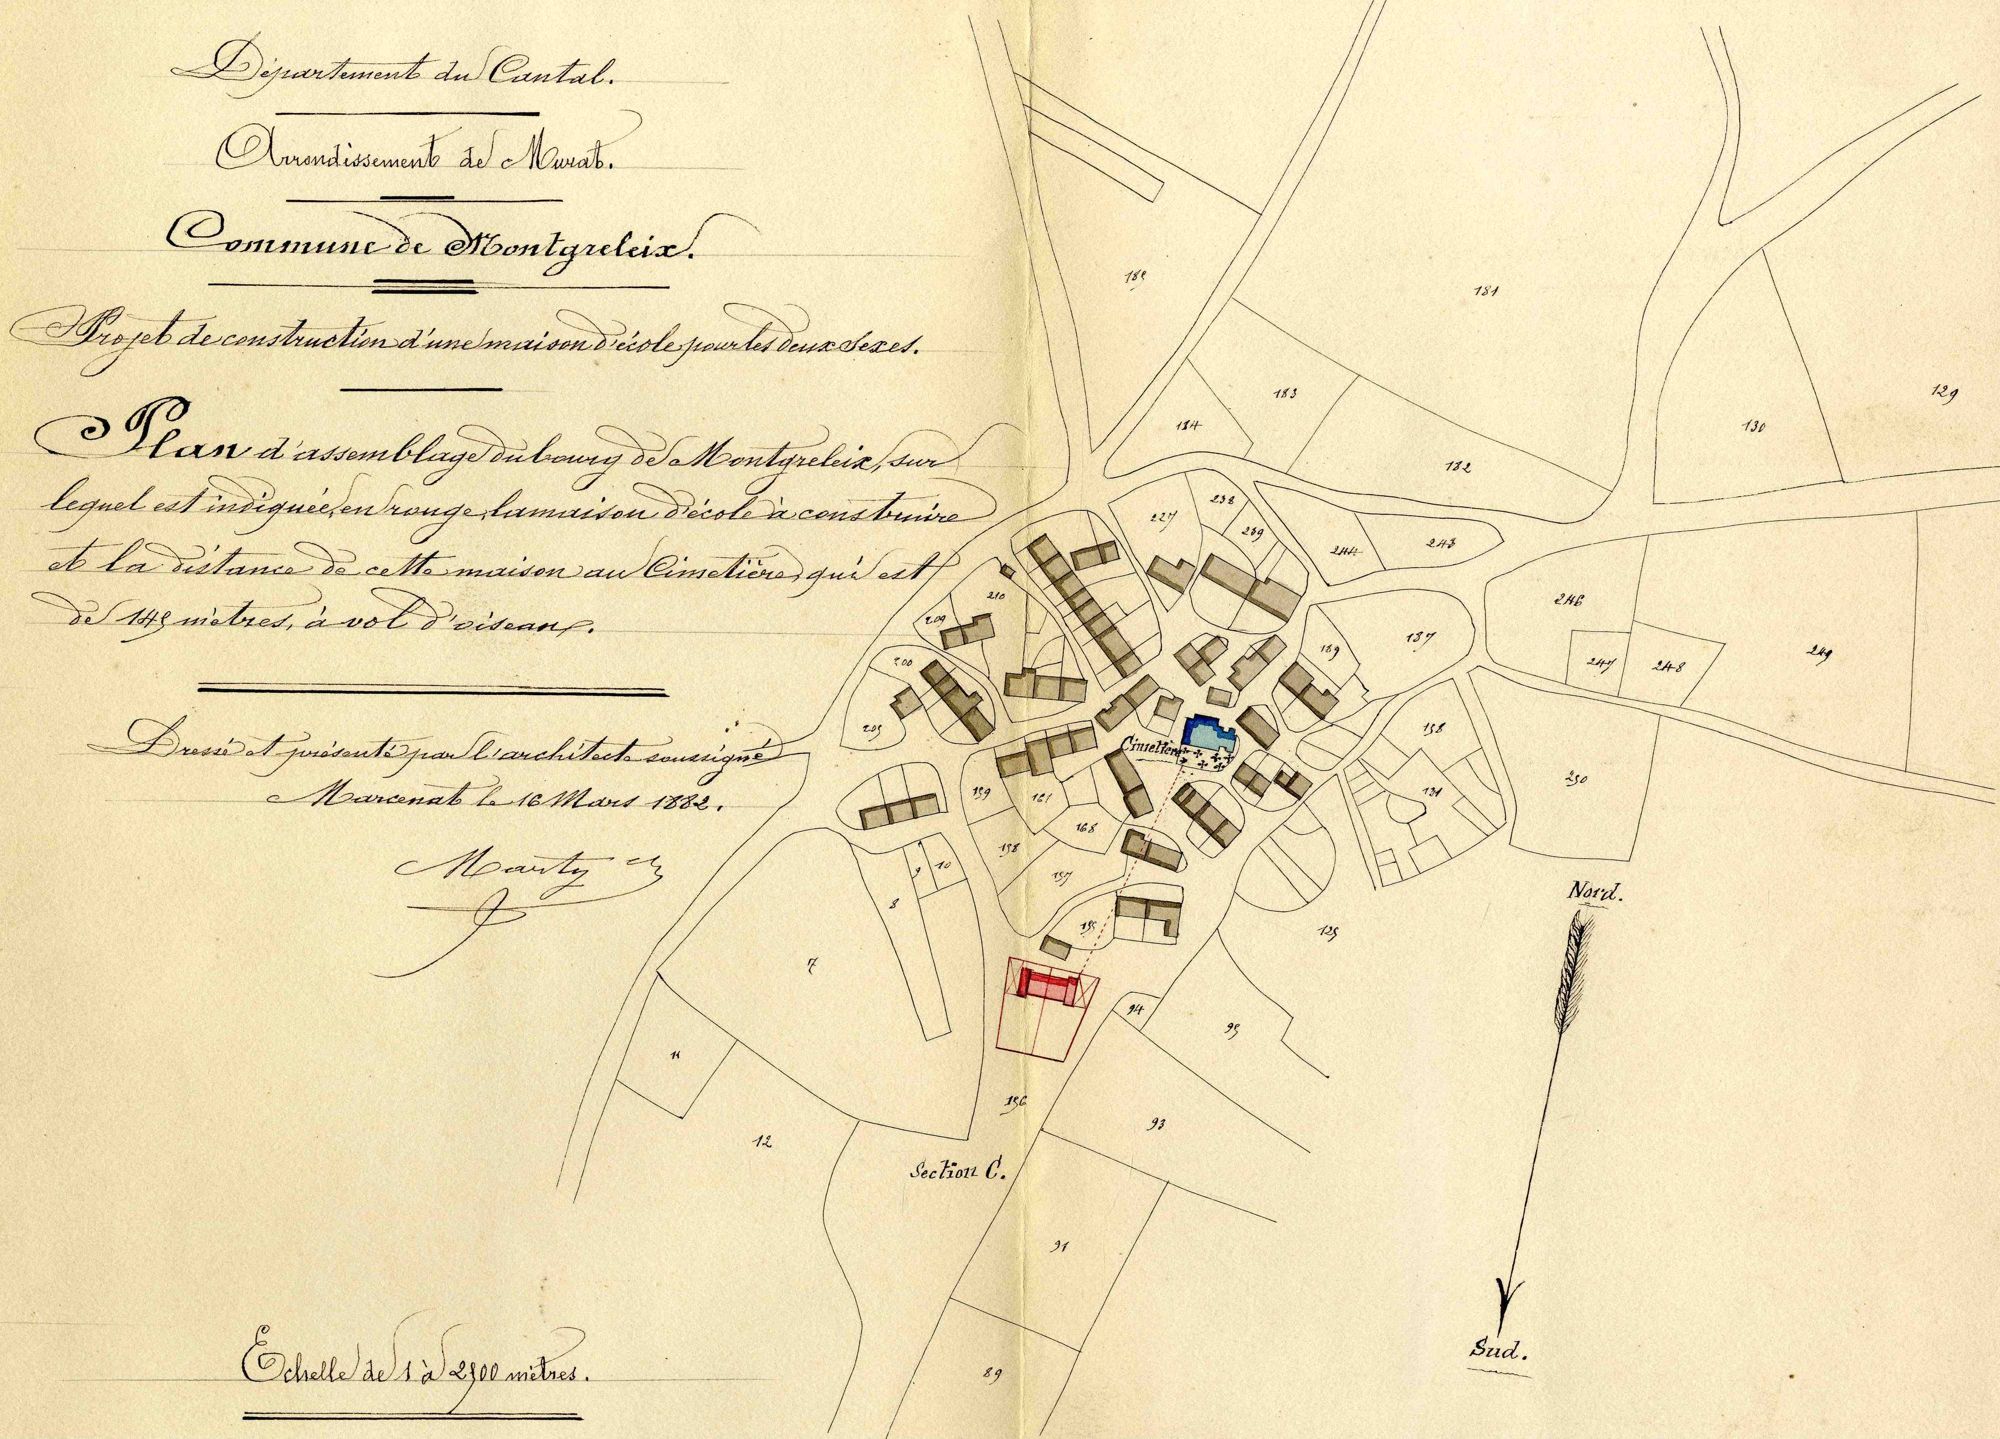 Département du Cantal.
Arrondissement de Murat.
Commune de Montgreleix.
Projet de construction d'une maison d'école pour les deux sexes.
Plan d'assemblage du bourg de Montgreleix, sur
lequel est indiquée, en rouge, la maison d'école à construire
et la distance de cette maison au Cimetière, qui est
de 145 mètres, à vol d'oiseau.
Dressé et présenté par l'architecte soussigné
Marcenat le 16 Mars 1882.
Marty
Echelle de 1 à 2500 mètres.
181
183
184
182
129
130
227
238
239
244
243
246
247
248
249
210
209
200
205
189
187
138
131
250
Cimetière
159
161
168
158
157
155
9
10
8
7
11
12
125
94
95
93
156
Section C.
91
89
Nord.
Sud.